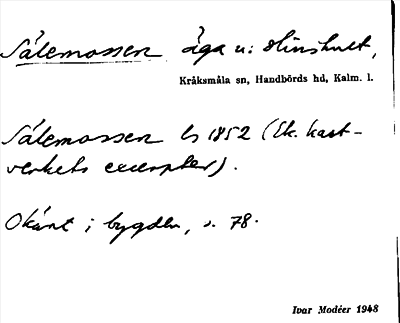 Sålemossen äga u: Stinshult,
Kråksmåla sn, Handbörds hd, Kalm. l.
Sålemossen ls 1852 (Ek. kart-
verkets excerpter).
Okänt i bygden, s. 78.
Ivar Modéer 1948